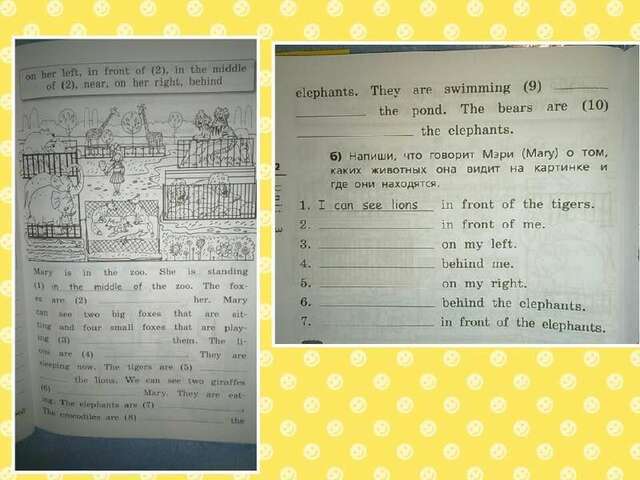 on her left, in front of (2), in the middle
of (2), near, on her right, behind
Mary is in the zoo. She is standing
(1) in the middle of the zoo. The fox-
es are (2) ____ her. Mary
can see two big foxes that are sit-
ting and four small foxes that are play-
ing (3) ____ them. The li-
ons are (4) ____ They are
sleeping now. The tigers are (5)
____ the lions. We can see two giraffes
(6) ____ Mary. They are eat-
ing. The elephants are (7) ____.
The crocodiles are (8) ____ the
elephants. They are swimming (9) ____
____ the pond. The bears are (10)
____ the elephants.
б) Напиши, что говорит Мэри (Mary) о том,
каких животных она видит на картинке и
где они находятся.
1. I can see lions in front of the tigers.
2. ____ in front of me.
3. ____ on my left.
4. ____ behind me.
5. ____ on my right.
6. ____ behind the elephants.
7. ____ in front of the elephants.